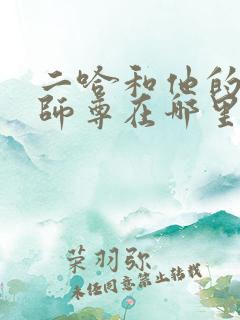 二哈和他的
師尊在哪里
荣羽弥
未经同意禁止转载